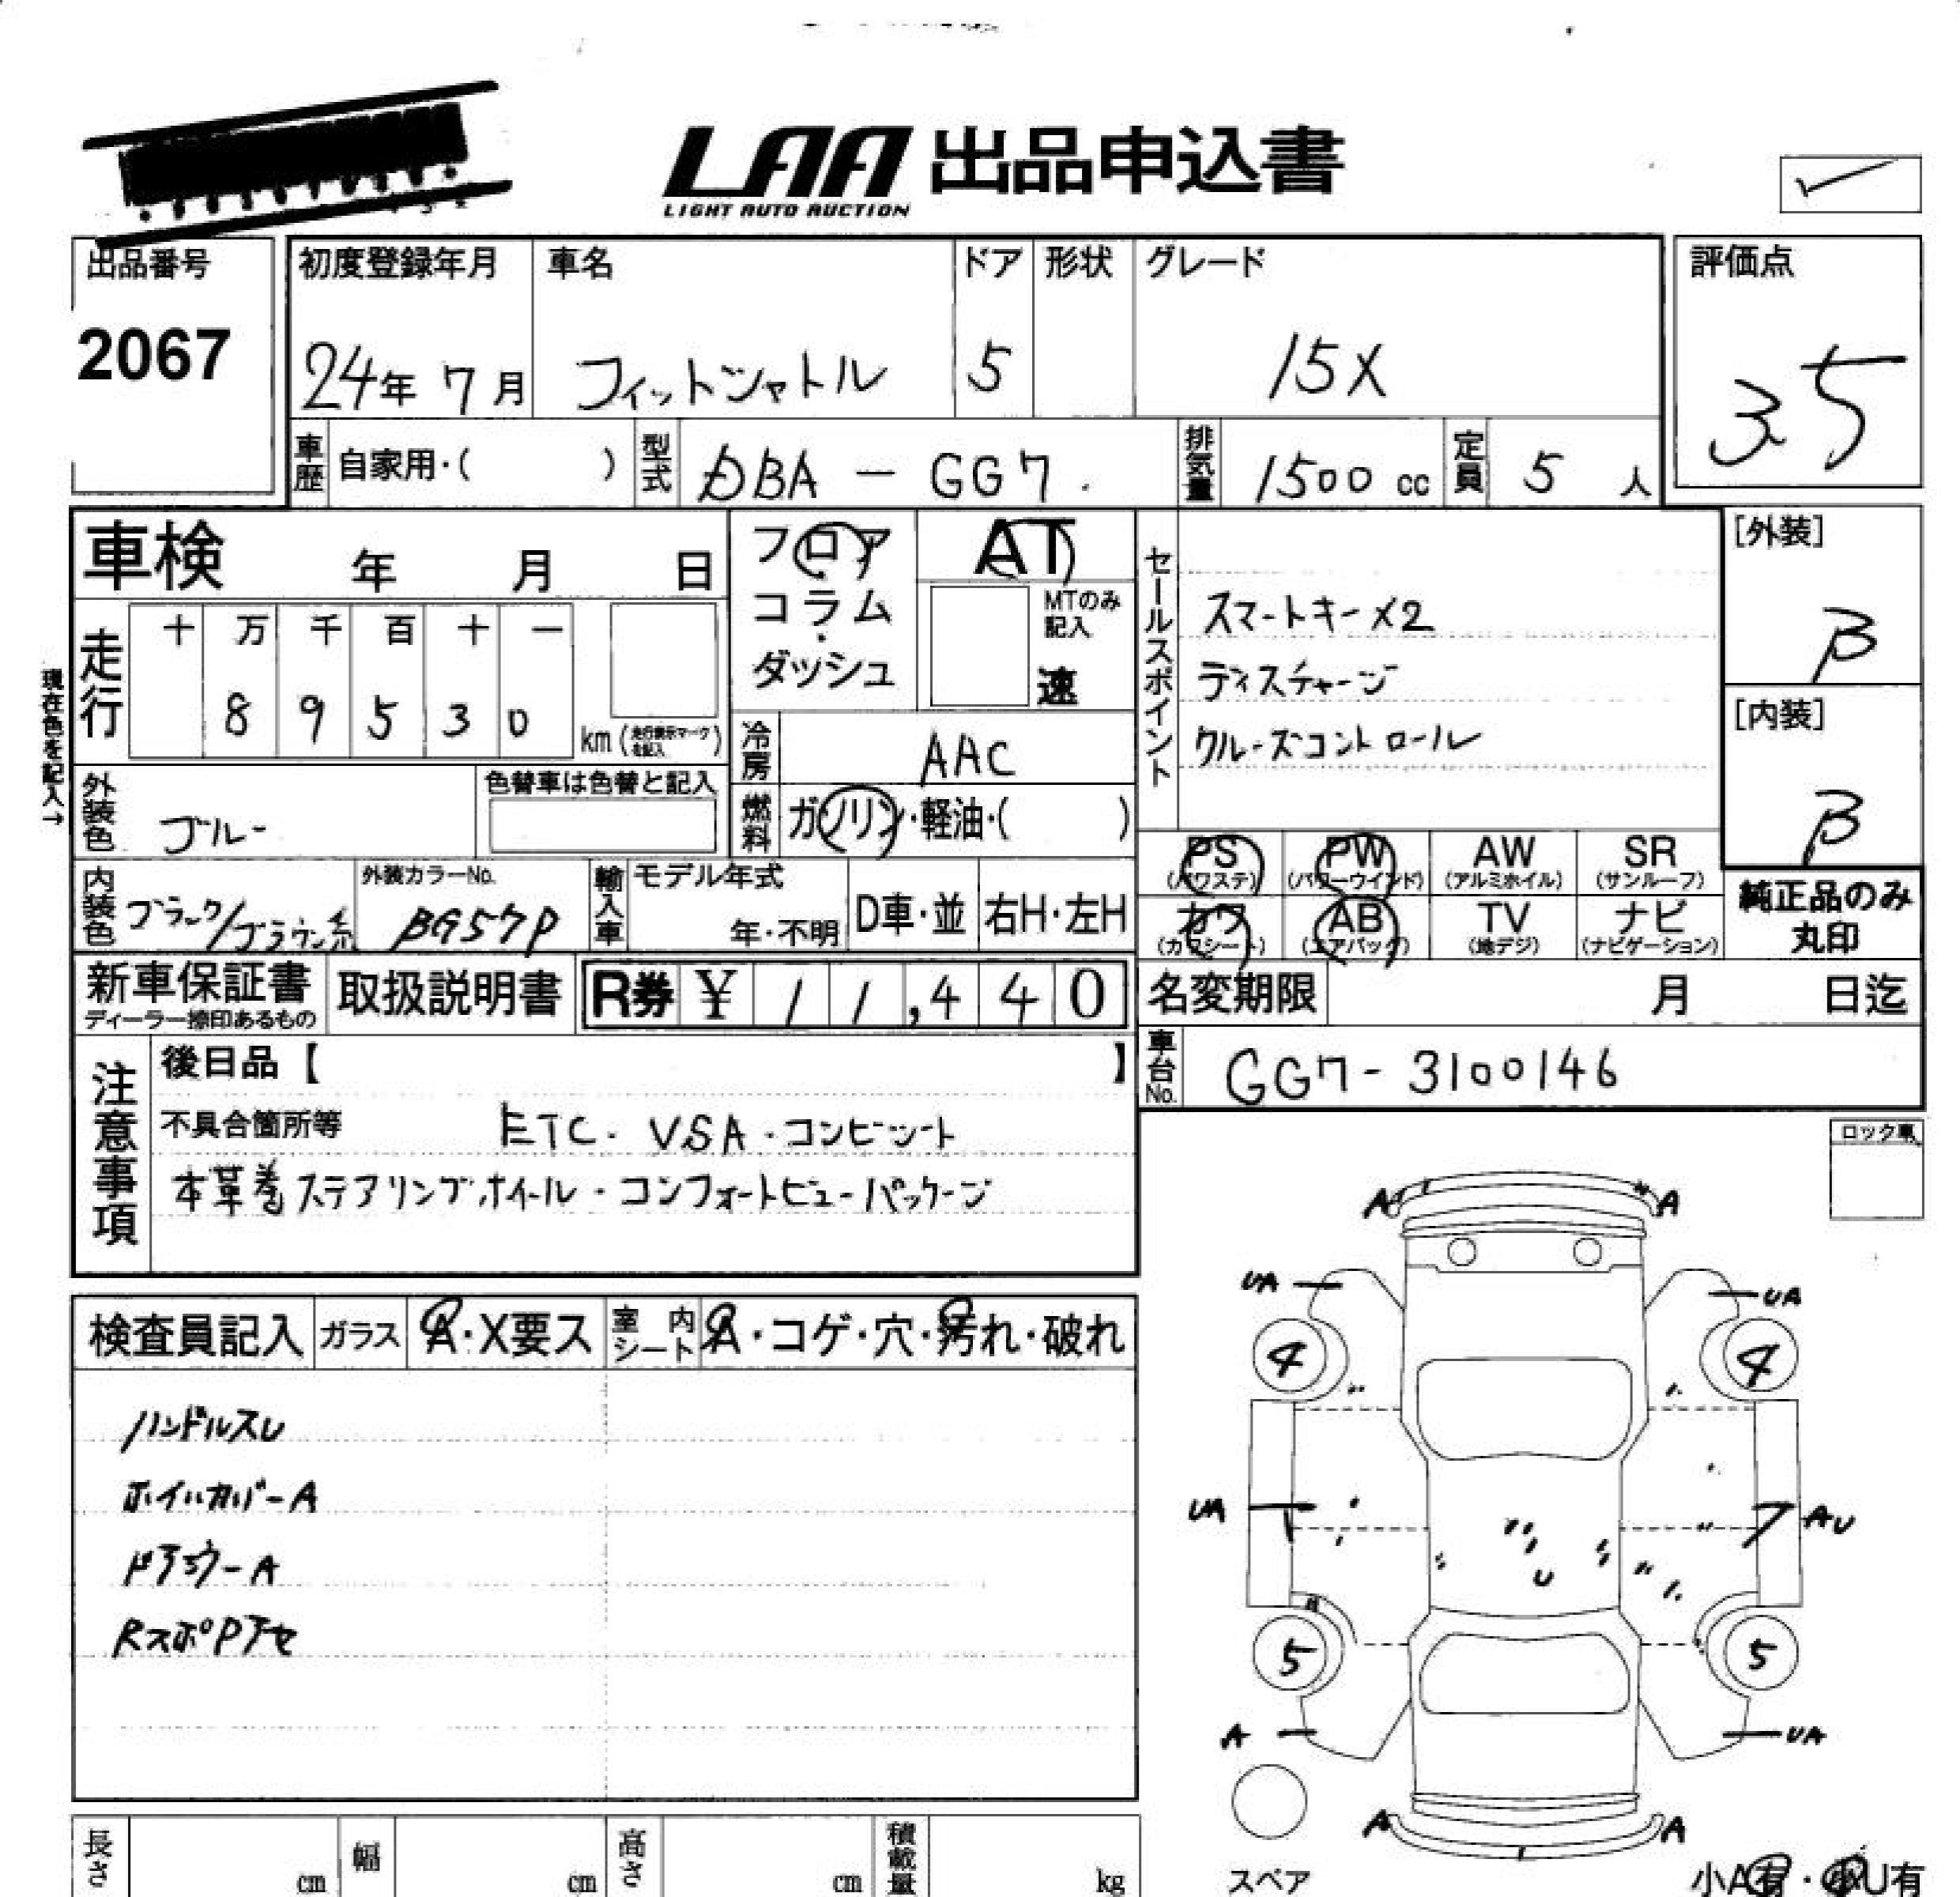 LAA 出品申込書
LIGHT AUTO AUCTION
出品番号 初度登録年月 車名 ドア 形状 グレード 評価点
2067 24年 7月 フィットシャトル 5 15X 3.5
車歴 自家用・( ) 型式 DBA - GG7 排気量 1500 cc 定員 5 人
車検 年 月 日 フロア AT [外装]
コラム・ MTのみ記入 B
ダッシュ 速
セールスポイント
スマートキーX2
ディスチャージ
クルーズコントロール
走行 十 万 千 百 十 一
8 9 5 3 0 km (走行表示マークを記入)
現在色を記入→
冷房 AAC [内装]
燃料 ガソリン・軽油・( ) B
外装色 ブルー 色替車は色替と記入
内装色 ブラック/ブラウン系 外装カラーNo. BG57P 輸入車 モデル年式 年・不明 D車・並 右H・左H
PS (パワステ) PW (パワーウインド) AW (アルミホイル) SR (サンルーフ)
カワ (カワシート) AB (エアバッグ) TV (地デジ) ナビ (ナビゲーション)
純正品のみ
丸印
新車保証書 取扱説明書 R券 ¥ 11,440 名変期限 月 日迄
ディーラー捺印あるもの
車台No. GG7-3100146
注意事項 後日品【 】
不具合箇所等 ETC. VSA・コンビシート
本革巻ステアリングホイール・コンフォートビューパッケージ
ロック車
検査員記入 ガラス A・X要ス 室内シート A・コゲ・穴・汚れ・破れ
ハンドルスレ
ホイルカバーA
ドアミラーA
RスポPアセ
A A
UA UA
4 4
UA AU
U
5 5
A UA
A A
スペア 小A有・小U有
長さ cm 幅 cm 高さ cm 積載量 kg